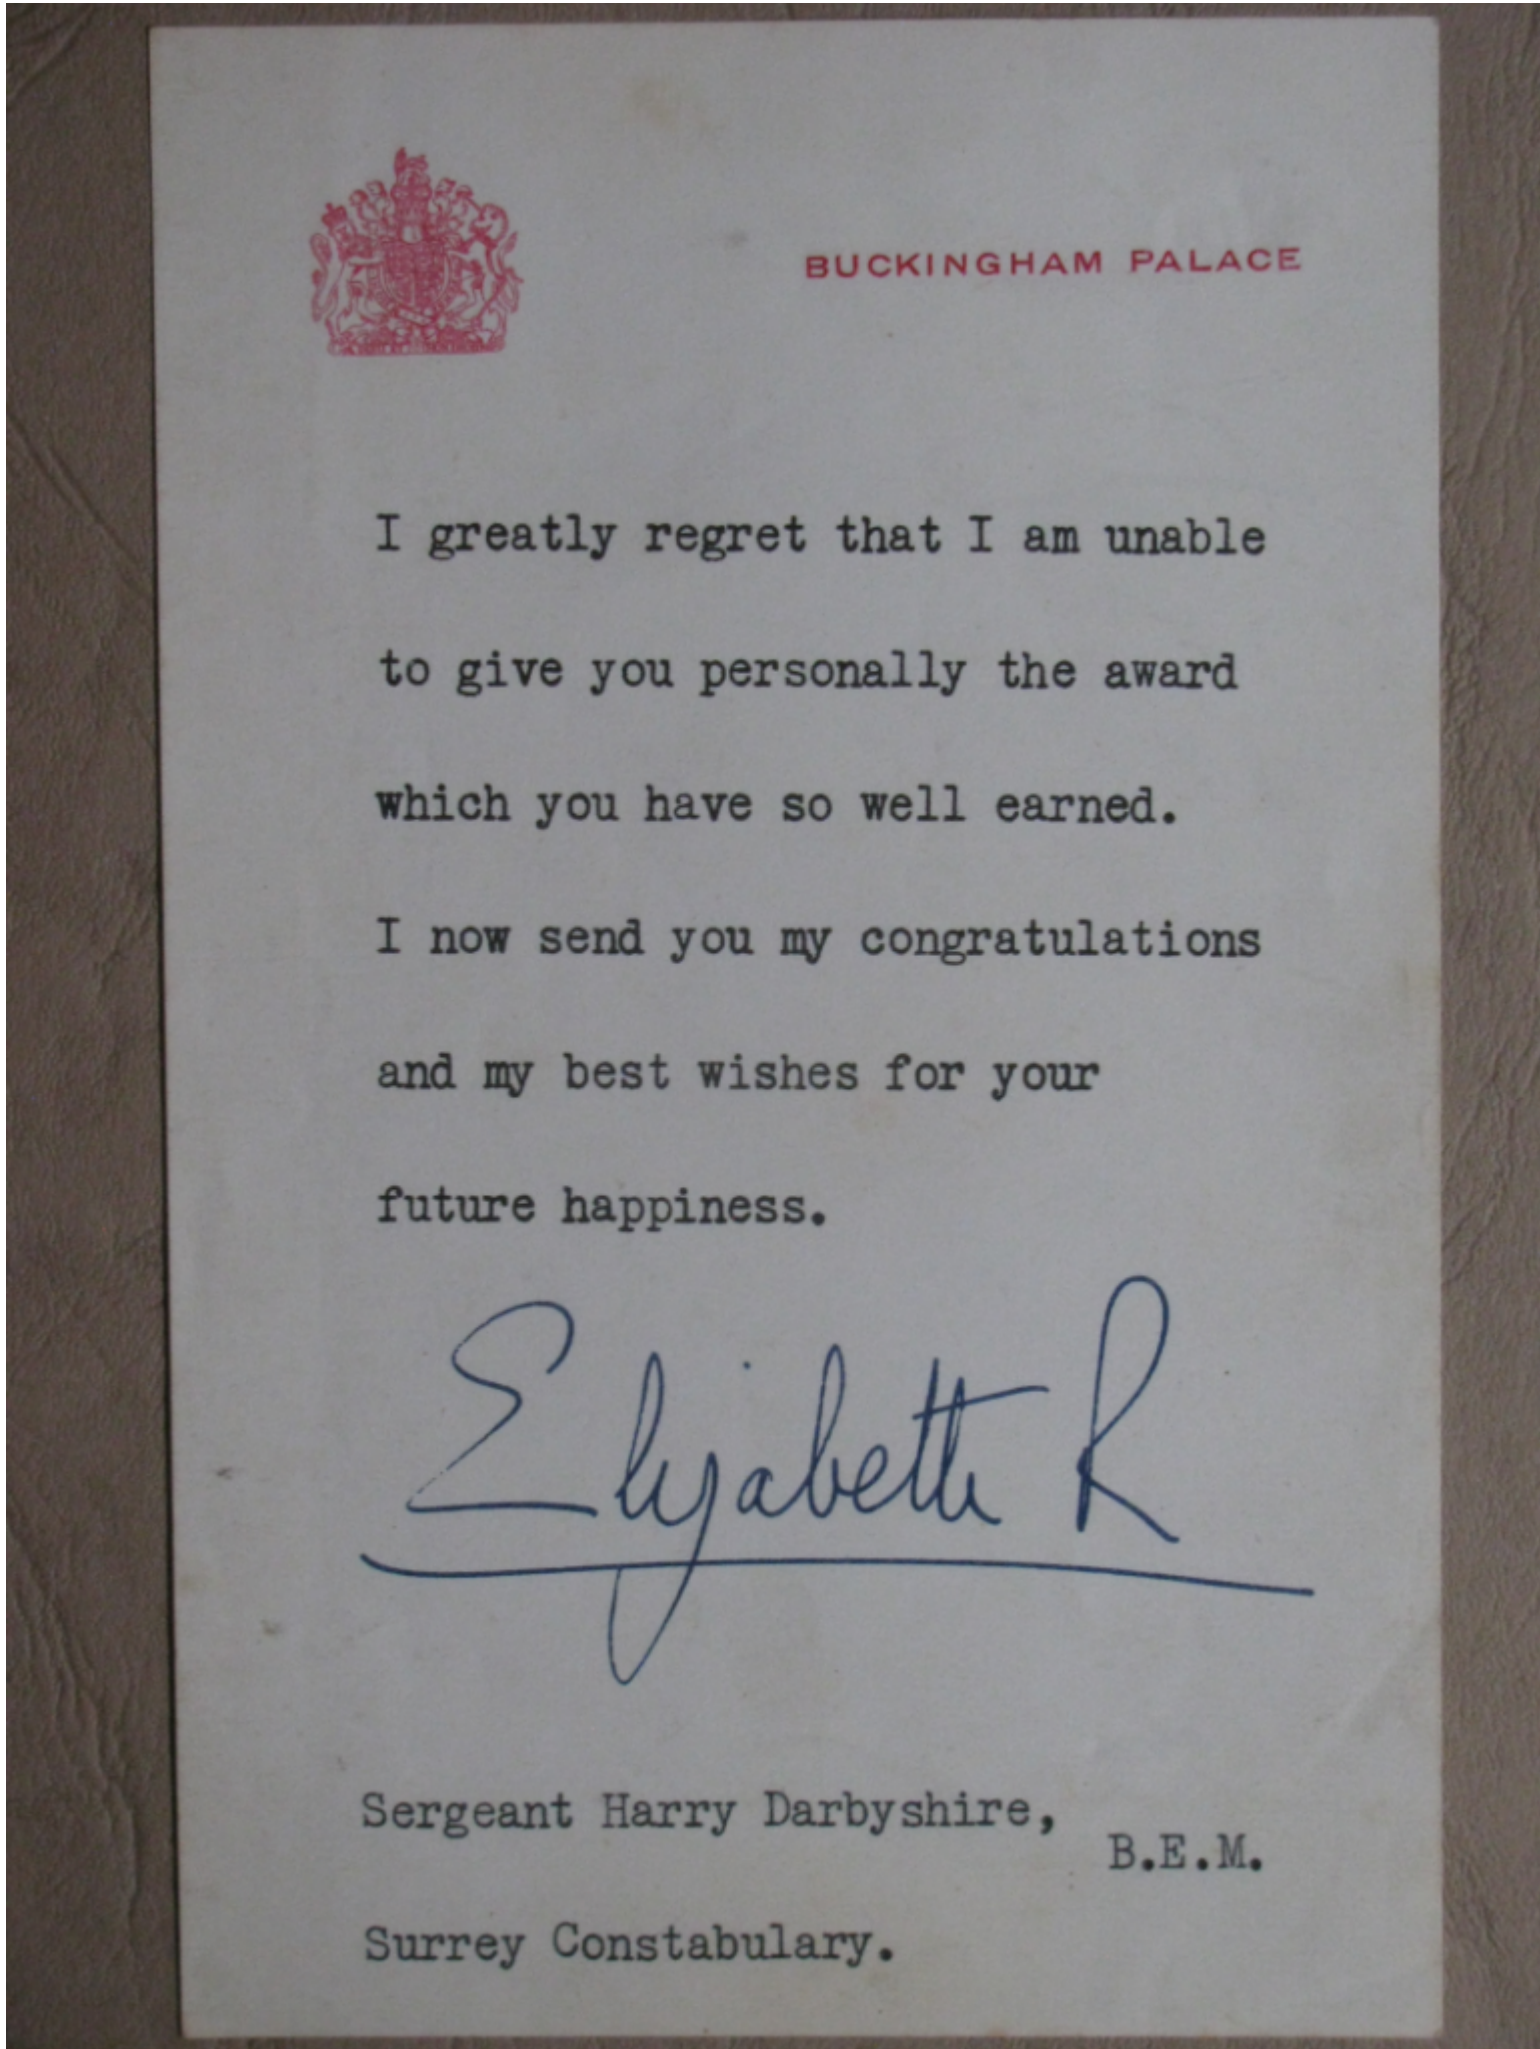 BUCKINGHAM PALACE
I greatly regret that I am unable
to give you personally the award
which you have so well earned.
I now send you my congratulations
and my best wishes for your
future happiness.
Elizabeth R
Sergeant Harry Darbyshire,
B.E.M.
Surrey Constabulary.